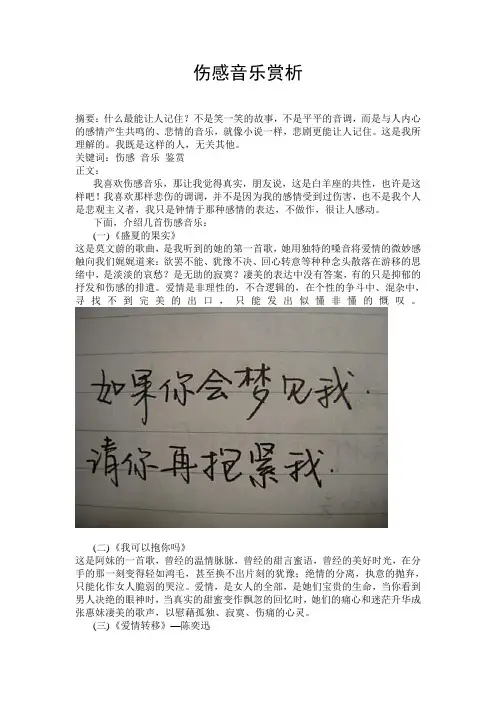 伤感音乐赏析
摘要：什么最能让人记住？不是笑一笑的故事，不是平平的音调，而是与人内心
的感情产生共鸣的、悲情的音乐，就像小说一样，悲剧更能让人记住。这是我所
理解的。我既是这样的人，无关其他。
关键词：伤感 音乐 鉴赏
正文：
我喜欢伤感音乐，那让我觉得真实，朋友说，这是白羊座的共性，也许是这
样吧！我喜欢那样悲伤的调调，并不是因为我的感情受到过伤害，也不是我个人
是悲观主义者，我只是钟情于那种感情的表达，不做作，很让人感动。
下面，介绍几首伤感音乐：
(一)《盛夏的果实》
这是莫文蔚的歌曲，是我听到的她的第一首歌，她用独特的嗓音将爱情的微妙感
触向我们娓娓道来：欲罢不能、犹豫不决、回心转意等种种念头散落在游移的思
绪中，是淡淡的哀愁？是无助的寂寞？凄美的表达中没有答案，有的只是抑郁的
抒发和伤感的排遣。爱情是非理性的，不合逻辑的，在个性的争斗中、混杂中，
寻找不到完美的出口，只能发出似懂非懂的慨叹。
如果你会梦见我.
请你再抱紧我.
(二)《我可以抱你吗》
这是阿妹的一首歌，曾经的温情脉脉，曾经的甜言蜜语，曾经的美好时光，在分
手的那一刻变得轻如鸿毛，甚至换不出片刻的犹豫；绝情的分离，执意的抛弃，
只能化作女人脆弱的哭泣。爱情，是女人的全部，是她们宝贵的生命，当你看到
男人决绝的眼神时，当真实的甜蜜变作飘忽的回忆时，她们的痛心和迷茫升华成
张惠妹凄美的歌声，以慰藉孤独、寂寞、伤痛的心灵。
(三)《爱情转移》—陈奕迅